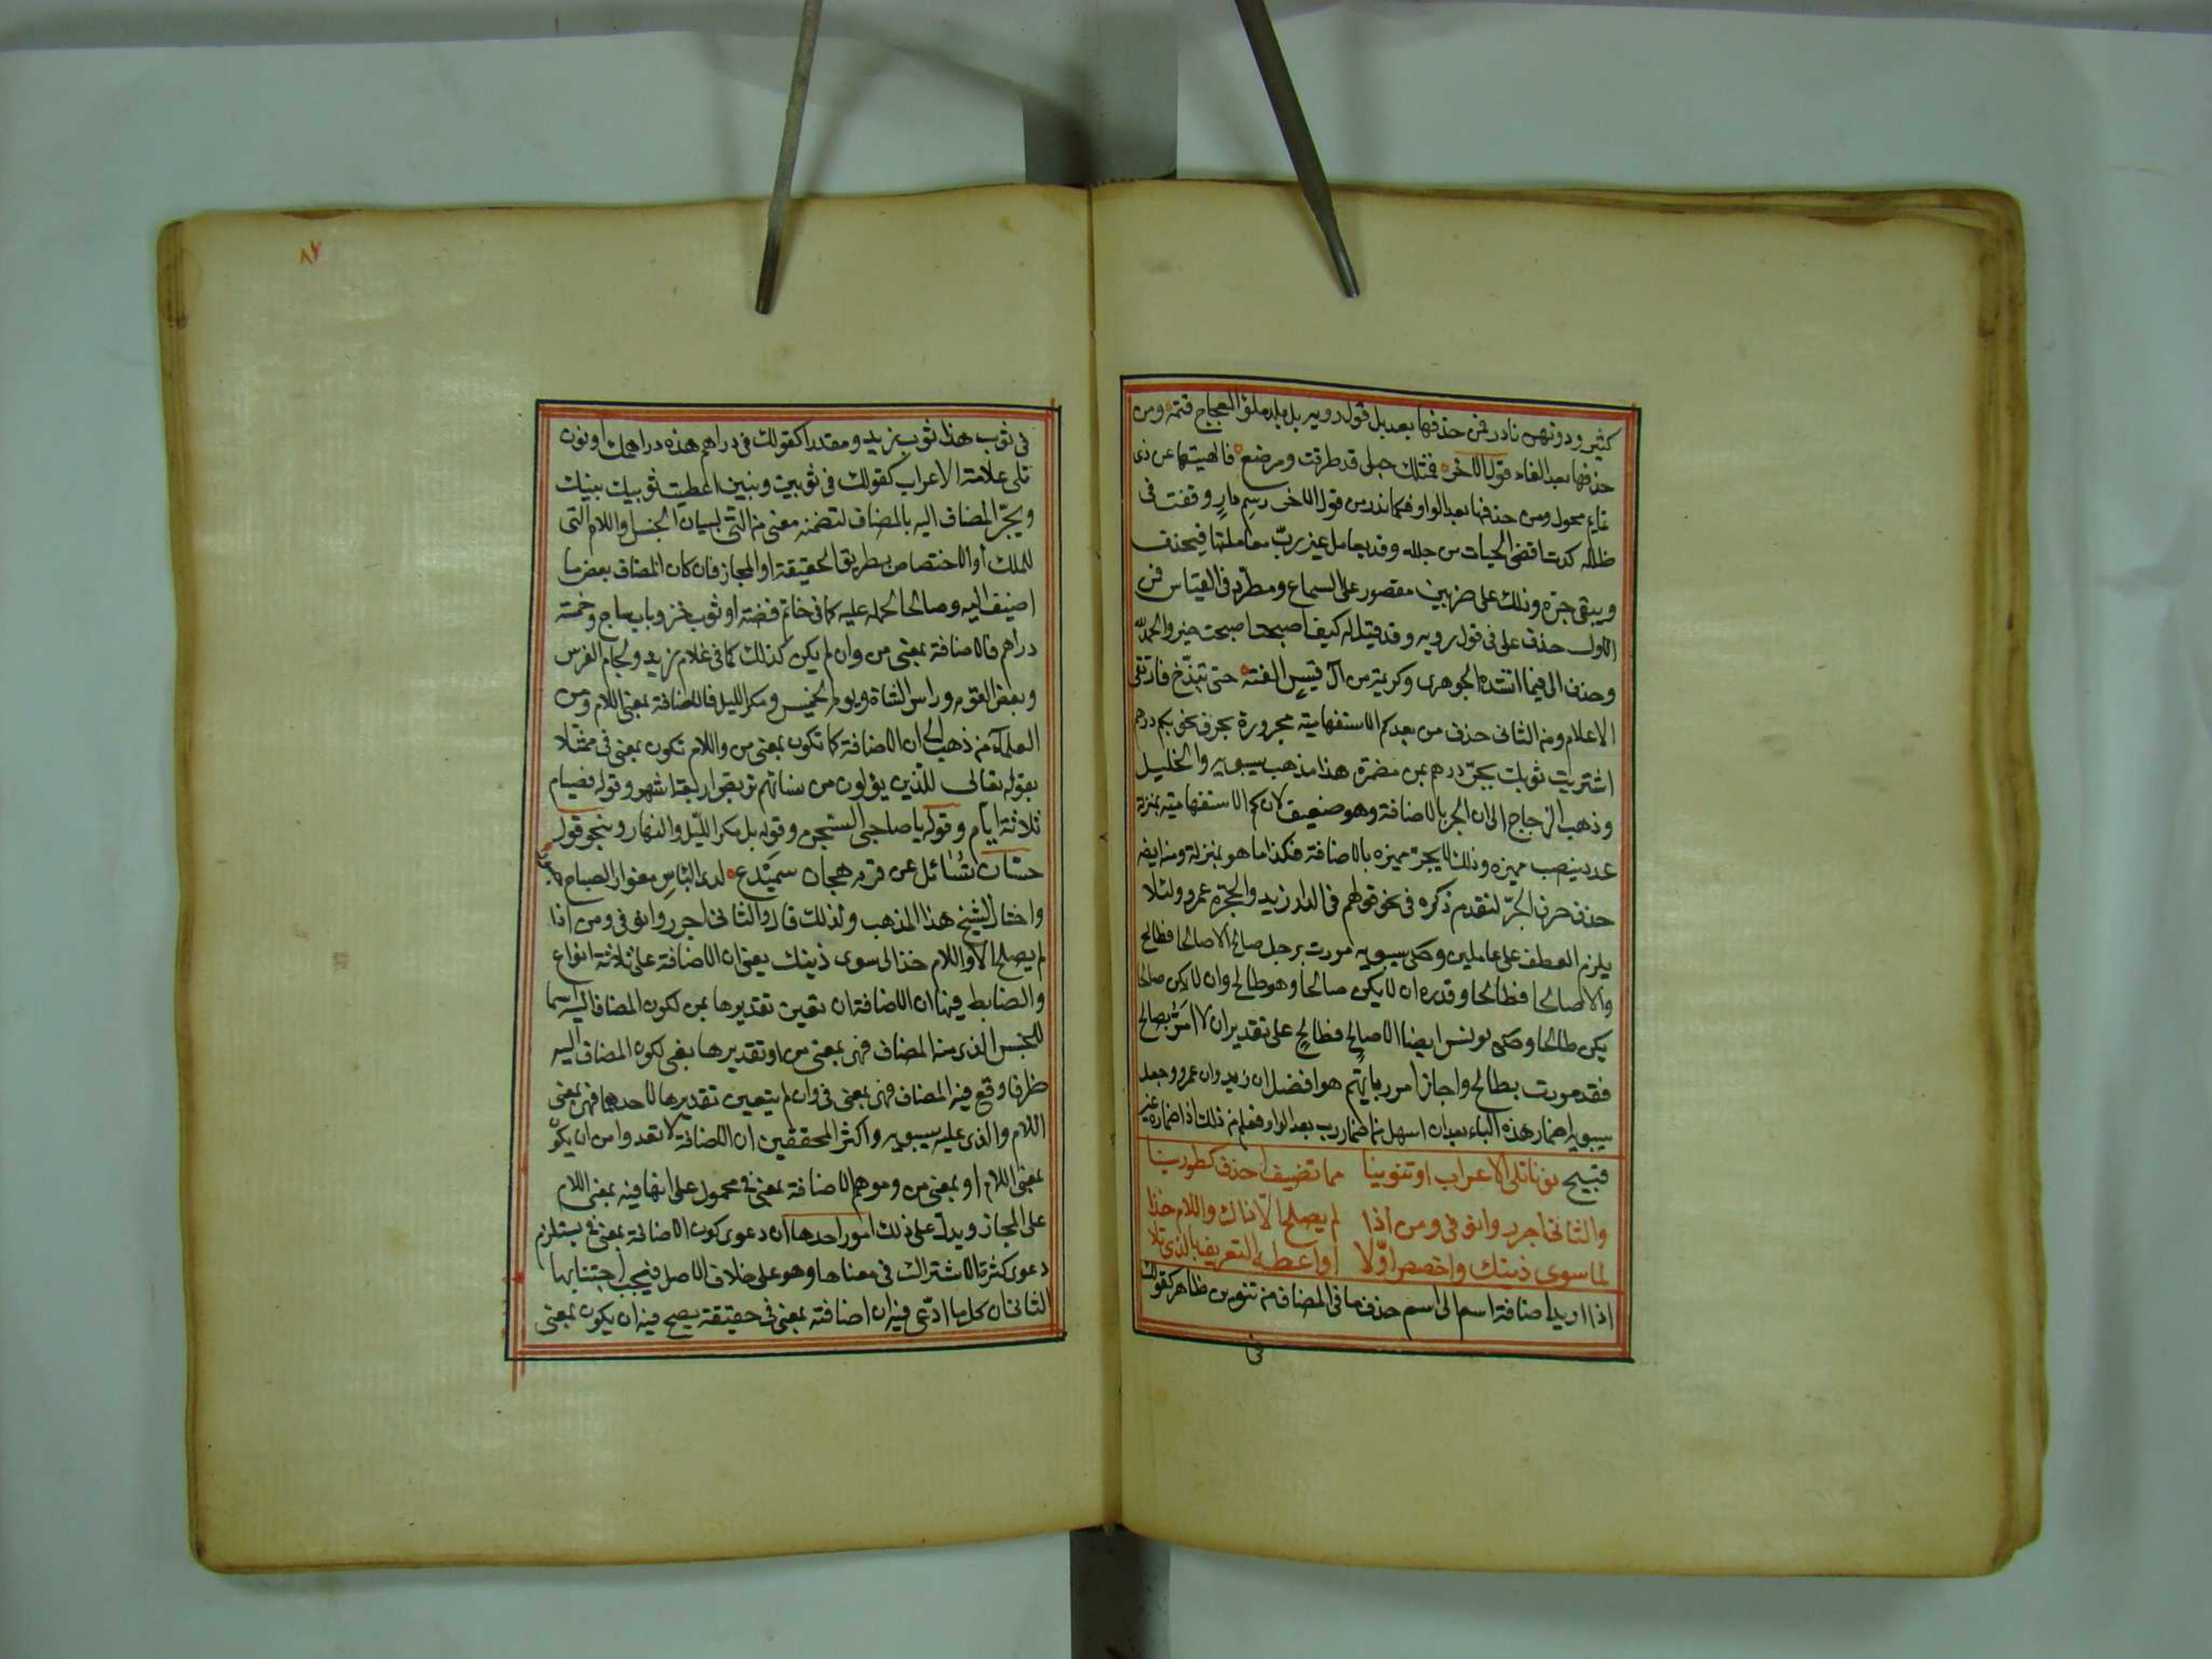 كثير ودونهن نادر فمن حذفها بعد بل قول روبه بل بلد ملؤ العجاج قتمه ومن
حذفها بعد الفاء قول الاخر فمثلك حبلى قد طرقت ومرضع فالهيتها عن ذى
تمايم محول ومن حذفها بعد الواو فكما ندر من قول الاخر رسم دار وقفت فى
طلله كدت اقضى الحيات من جلله وقد يعامل غير ربّ معاملتها فيحذف
ويبقى جره وذلك على ضربين مقصور على السماع ومطرد فى القياس فمن
الاول حذف على فى قول روبه وقد قيل له كيف اصبحت اصبحت خير والحمد لله
وحذف الى فيما انشده الجوهرى وكريمة من آل قيس الفته حتى تبذخ فارتقى
الاعلام ومن الثانى حذف من بعد كم الاستفهامية مجرورة بحرف نحو بكم درهم
اشتريت ثوبك بجرّ درهم بمن مضمرة هذا مذهب سيبويه والخليل
وذهب الزجاج الى ان الجر بالاضافة وهو ضعيف لان كم الاستفهامية بمنزلة
عدد ينصب مميزه وذلك لا يجرّ مميزه بالاضافة فكذا ما هو بمنزلة ومنه ايضه
حذف حرف الجرّ لتقدم ذكره فى نحو قولهم فى الدار زيد والحجرة عمرو ولئلا
يلزم العطف على عاملين وحكى سيبويه مررت برجل صالح الا صالحا فطالح
والا صالحا فطالحا وقدره ان لا يكن صالحا وهو طالح وان لا يكن صالحا
يكن طالحا وحكى يونس ايضا الا صالحٍ فطالحٍ على تقدير ان لا امرّ بصالح
فقد مررت بطالح واجاز امرر بايّهم هو افضل ان زيد وان عمرو وجعل
سيبويه اضمار هذه الباء بعد ان اسهل من اضمار رب بعد الواو فعلم من ذلك اذ اضماره غير
قبيح نونا تلى الاعراب او تنوينا مما تضيف احذف كطور سينا
والثانى اجرر وانو فى ومن اذا لم يصلح الّا ذاك واللام خذا
لما سوى ذينك واخصص اوّلا او اعطه التعريف بالذى تلا
اذا اريد اضافة اسم الى اسم حذف ما فى المضاف من تنوين ظاهر كقولك
فى
٨٧
فى ثوب هذا ثوب زيد ومقدرا كقولك فى دراهم هذه دراهمك او نون
تلى علامة الاعراب كقولك فى ثوبين وبنين اعطيت ثوبيك بنيك
ويجرّ المضاف اليه بالمضاف لتضمنه معنى من التى لبيان الجنس او اللام التى
للملك او الاختصاص بطريق الحقيقة او المجاز فان كان المضاف بعض ما
اضيف اليه وصالحا لحمله عليه كما فى خاتم فضة او ثوب خز وباب ساج وخمسة
دراهم فالاضافة بمعنى من وان لم يكن كذلك كما فى غلام زيد ولجام الفرس
وبعض القوم وراس الشاة ويوم الخميس ومكر الليل فالاضافة بمعنى اللام ومن
العلماء من ذهب الى ان الاضافة كما تكون بمعنى من واللام تكون بمعنى فى ممثلا
بقوله تعالى للذين يؤلون من نسائهم تربص اربعة اشهر وقوله فصيام
ثلاثة ايام وقوله يا صاحبى السجن وقوله بل مكر الليل والنهار وبنحو قول
حسّان تسائل عن قرم هجان سميدع لدى الباس مغوار الصباح
واختار الشيخ هذا المذهب ولذلك قال والثانى اجرر وانو فى ومن اذا
لم يصلح الا واللام خذا لى سوى ذينك يعنى ان الاضافة على ثلاثة انواع
والضابط فيها ان الاضافة ان تعين تقديرها بمن لكون المضاف اليه اسما
للجنس الذى منه المضاف فهى بمعنى من او تقديرها بفى لكون المضاف اليه
ظرفا وقع فيه المضاف فهى بمعنى فى وان لم يتعين تقديرها لاحدهما فهى بمعنى
اللام والذى عليه سيبويه واكثر المحققين ان الاضافة لا تعدوا من ان يكون
بمعنى اللام او بمعنى من وموهم الاضافة بمعنى فى محمول على انها فيه بمعنى اللام
على المجاز ويدل على ذلك امور احدها ان دعوى كون الاضافة بمعنى فى يستلزم
دعوى كثرة الاشتراك فى معناها وهو على خلاف الاصل فيجب اجتنابها
الثانى ان كل ما ادّعى فيه ان اضافته بمعنى فى حقيقة يصح فيه ان يكون بمعنى